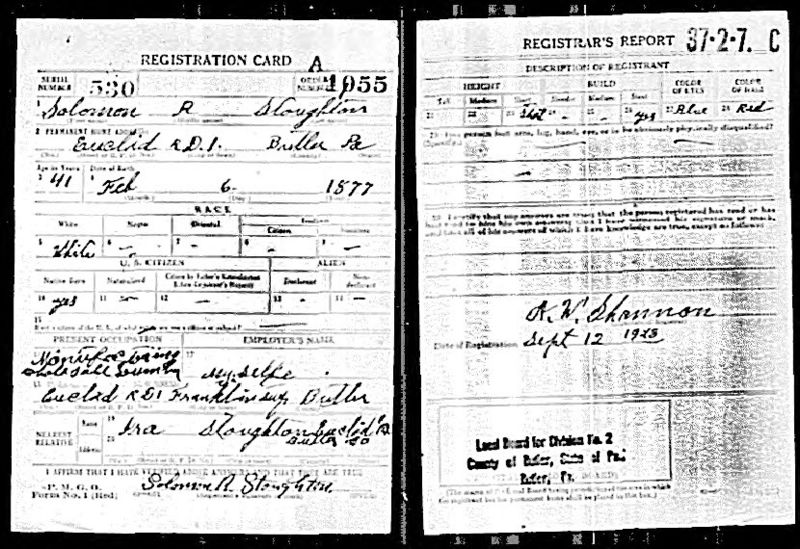 REGISTRATION CARD A
SERIAL NUMBER 530 ORDER NUMBER 1055
1 Solomon R Stoughton
2 PERMANENT HOME ADDRESS
Euclid R.D.1. Butler Pa
Age in Years Date of Birth
3 41 4 Feb 6 1877
RACE
White Negro Oriental Indian
Citizen
5 White 6 - 7 - 8 - 9 -
U. S. CITIZEN ALIEN
Native Born Naturalized Citizen by Father's Naturalization Before Registrant's Majority Declarant Non-declarant
10 yes 11 - 12 - 13 - 14 -
15
PRESENT OCCUPATION EMPLOYER'S NAME
17 My Selfe
Euclid RD1 Franklin twp Butler
NEAREST RELATIVE
Name 19 Ira Stoughton
Address 20
Butler Co
I AFFIRM THAT I HAVE VERIFIED ABOVE ANSWERS AND THAT THEY ARE TRUE
P. M. G. O.
Form No. 1 (Red) Solomon R. Stoughton
REGISTRAR'S REPORT 37-2-7. C
DESCRIPTION OF REGISTRANT
HEIGHT BUILD COLOR OF EYES COLOR OF HAIR
Tall Medium Short Slender Medium Stout
21 22 23 Short 24 - 25 - 26 yes 27 Blue 28 Red
29 Has person lost arm, leg, hand, eye, or is he obviously physically disqualified?
(Specify.)
30 I certify that my answers are true; that the person registered has read or has
had read to him his own answers; that I have witnessed his signature or mark,
and that all of his answers of which I have knowledge are true, except as follows:
Shannon
Date of Registration Sept 12
Local Board for Division No. 2
County of Butler, State of Pa.
Butler, Pa.